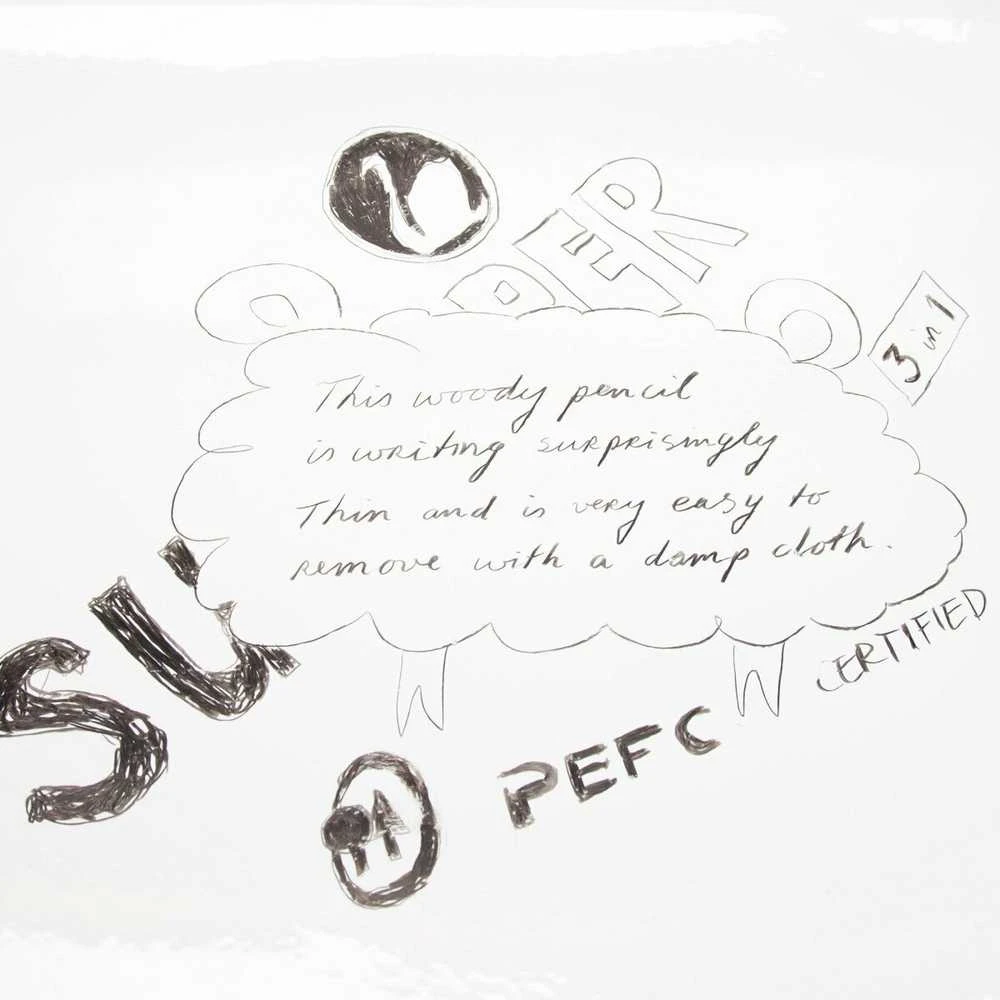 DER
3 in 1
This woody pencil
is writing surprisingly
Thin and is very easy to
remove with a damp cloth.
SU
PEFC CERTIFIED